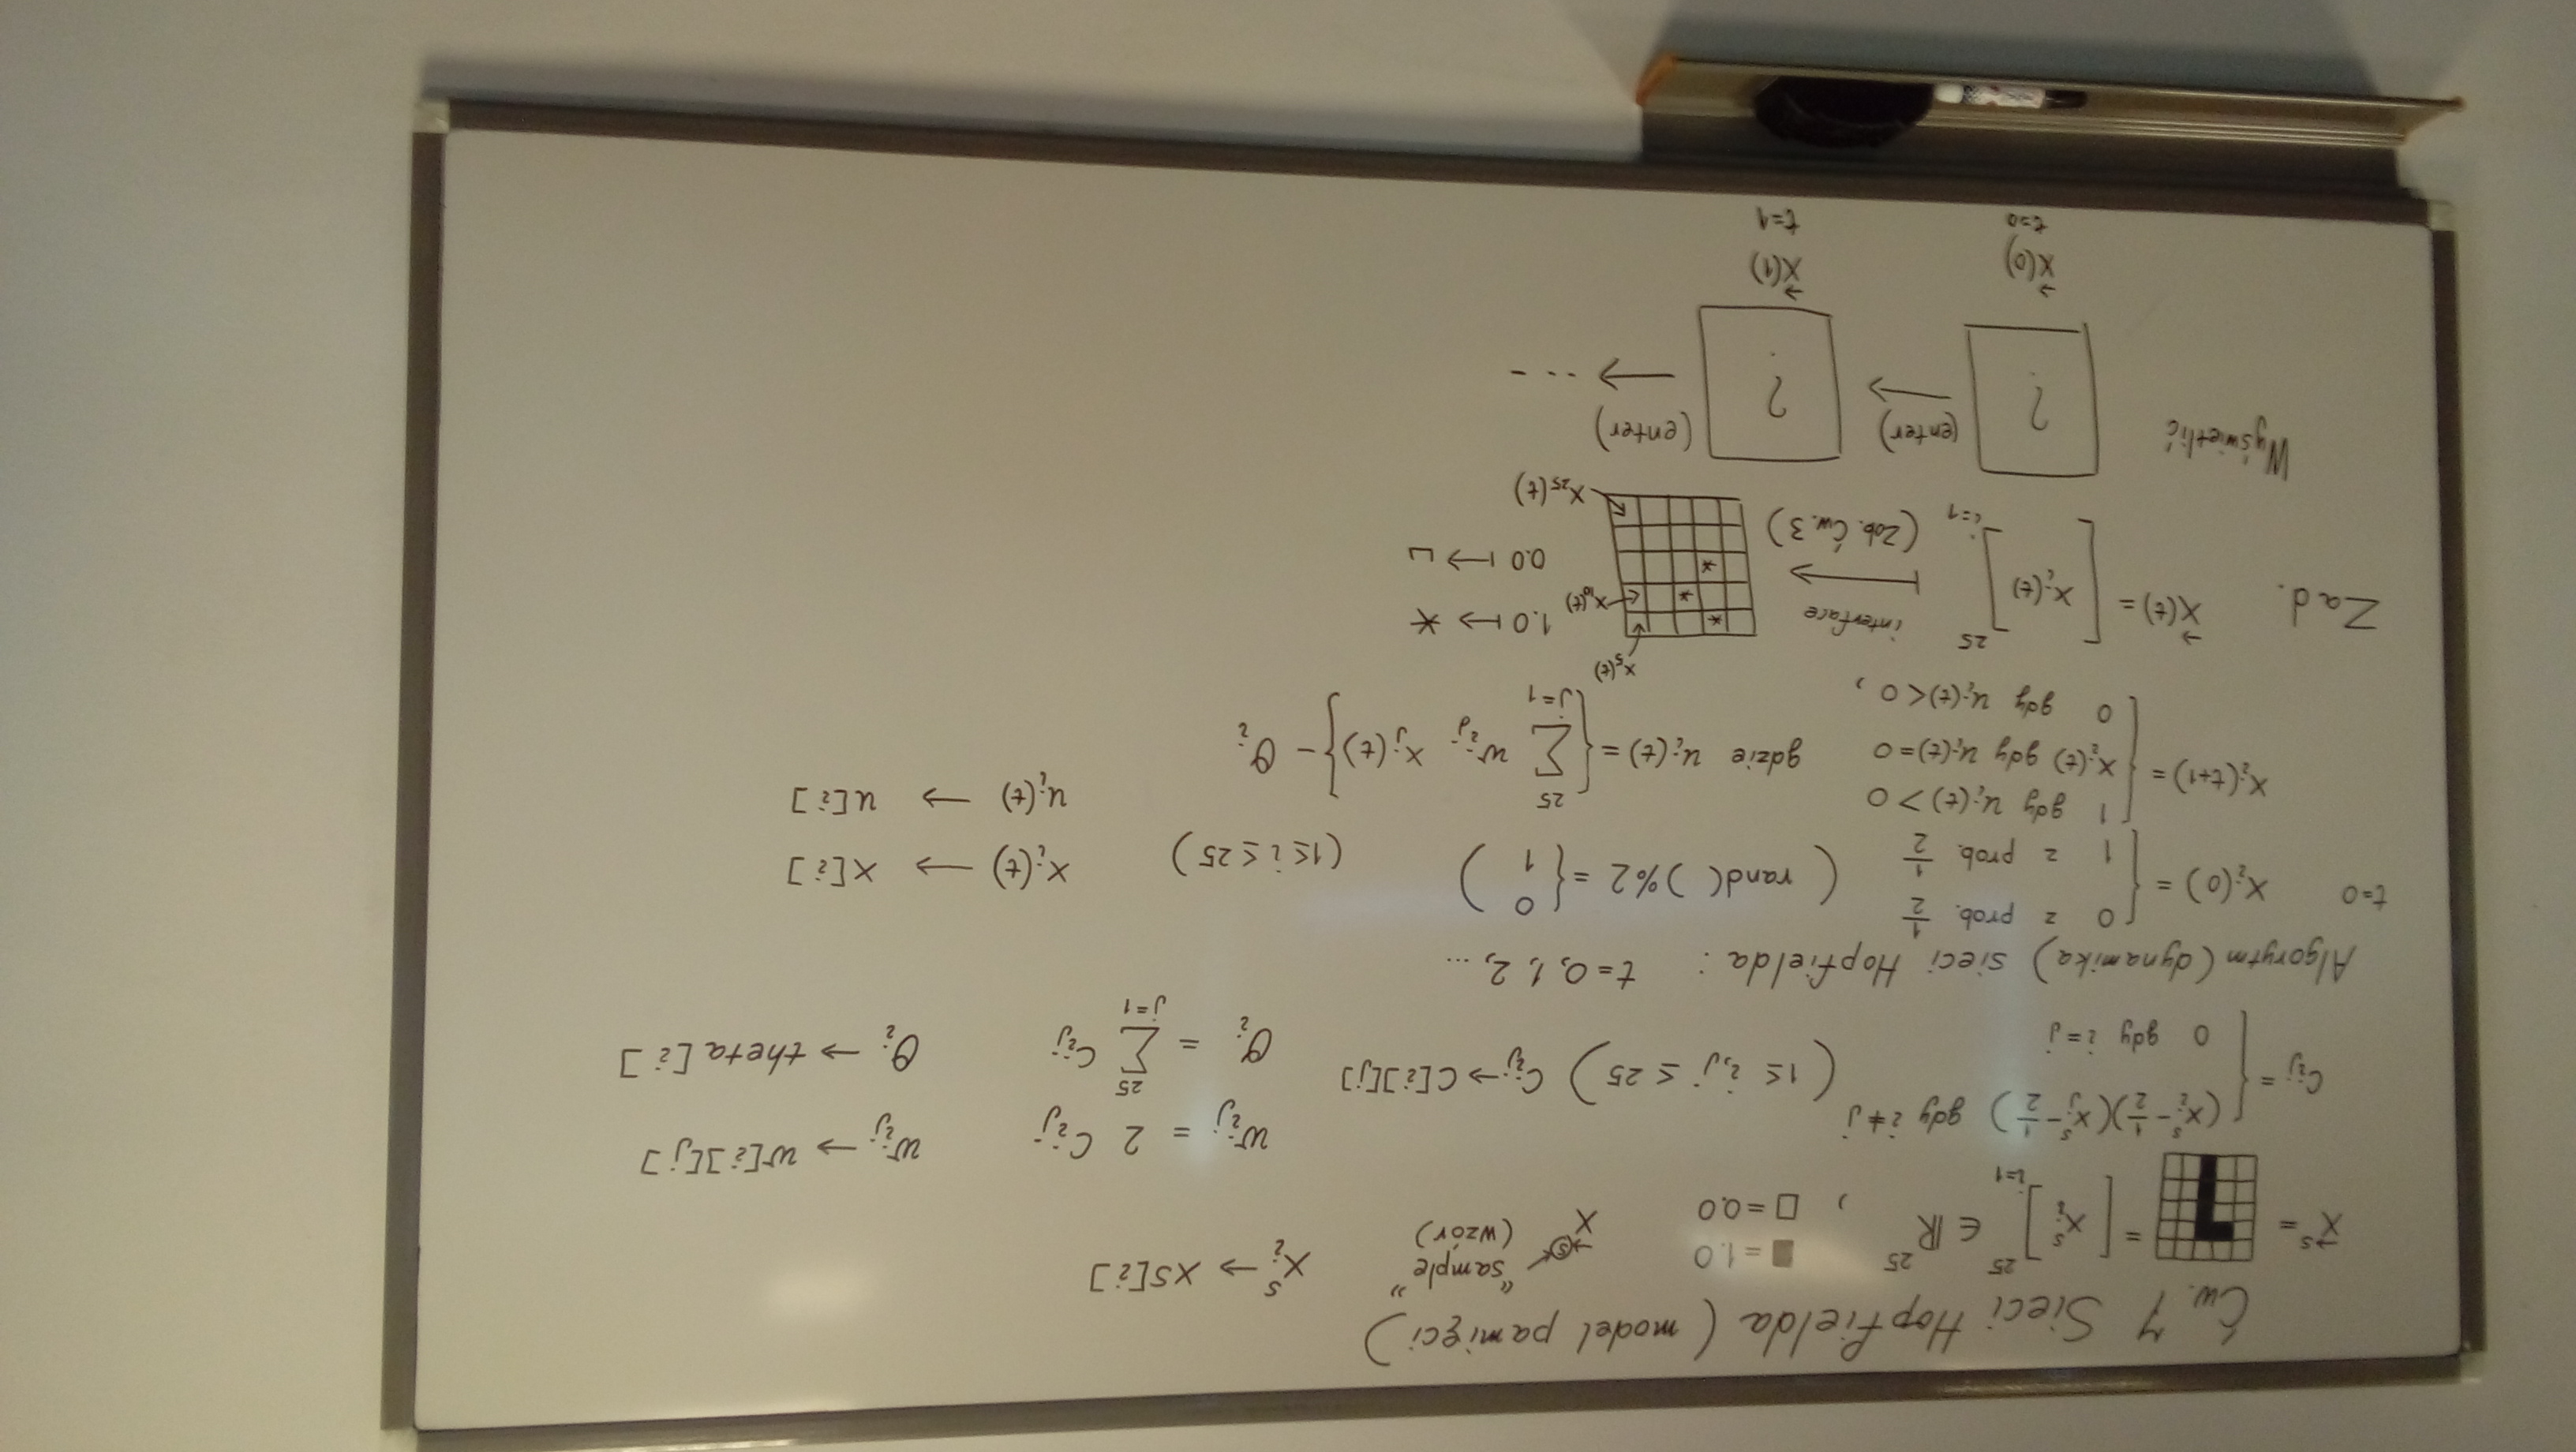 Ćw. 7 Sieci Hopfielda (model pamięci)
x⃗ˢ = 1 = [xᵢˢ]²⁵ᵢ₌₁ ∈ ℝ²⁵, ■ = 1.0
□ = 0.0
x⃗ⓢ ← "sample"
(wzór)
xᵢˢ → xs[i]
cᵢⱼ = { (xᵢˢ - 1/2)(xⱼˢ - 1/2) gdy i ≠ j
0 gdy i = j
(1 ≤ i, j ≤ 25) cᵢⱼ → c[i][j]
wᵢⱼ = 2 cᵢⱼ wᵢⱼ → w[i][j]
θᵢ = Σ²⁵ⱼ₌₁ cᵢⱼ θᵢ → theta[i]
Algorytm (dynamika) sieci Hopfielda: t = 0, 1, 2, ...
t=0 xᵢ(0) = { 0 z prob. 1/2
1 z prob. 1/2
(rand( )%2 = { 0
1 )
(1 ≤ i ≤ 25) xᵢ(t) → x[i]
uᵢ(t) → u[i]
xᵢ(t+1) = { 1 gdy uᵢ(t) > 0
xᵢ(t) gdy uᵢ(t) = 0
0 gdy uᵢ(t) < 0,
gdzie uᵢ(t) = { Σ²⁵ⱼ₌₁ wᵢⱼ xⱼ(t) } - θᵢ
Zad. x⃗(t) = [xᵢ(t)]²⁵ᵢ₌₁
interface
(Zob. Ćw. 3)
x₅(t)
x₁₀(t)
x₂₅(t)
* * *
1.0 ↦ *
0.0 ↦ ␣
Wyświetlić ? (enter) → ? (enter) → ...
x⃗(0) x⃗(1)
t=0 t=1